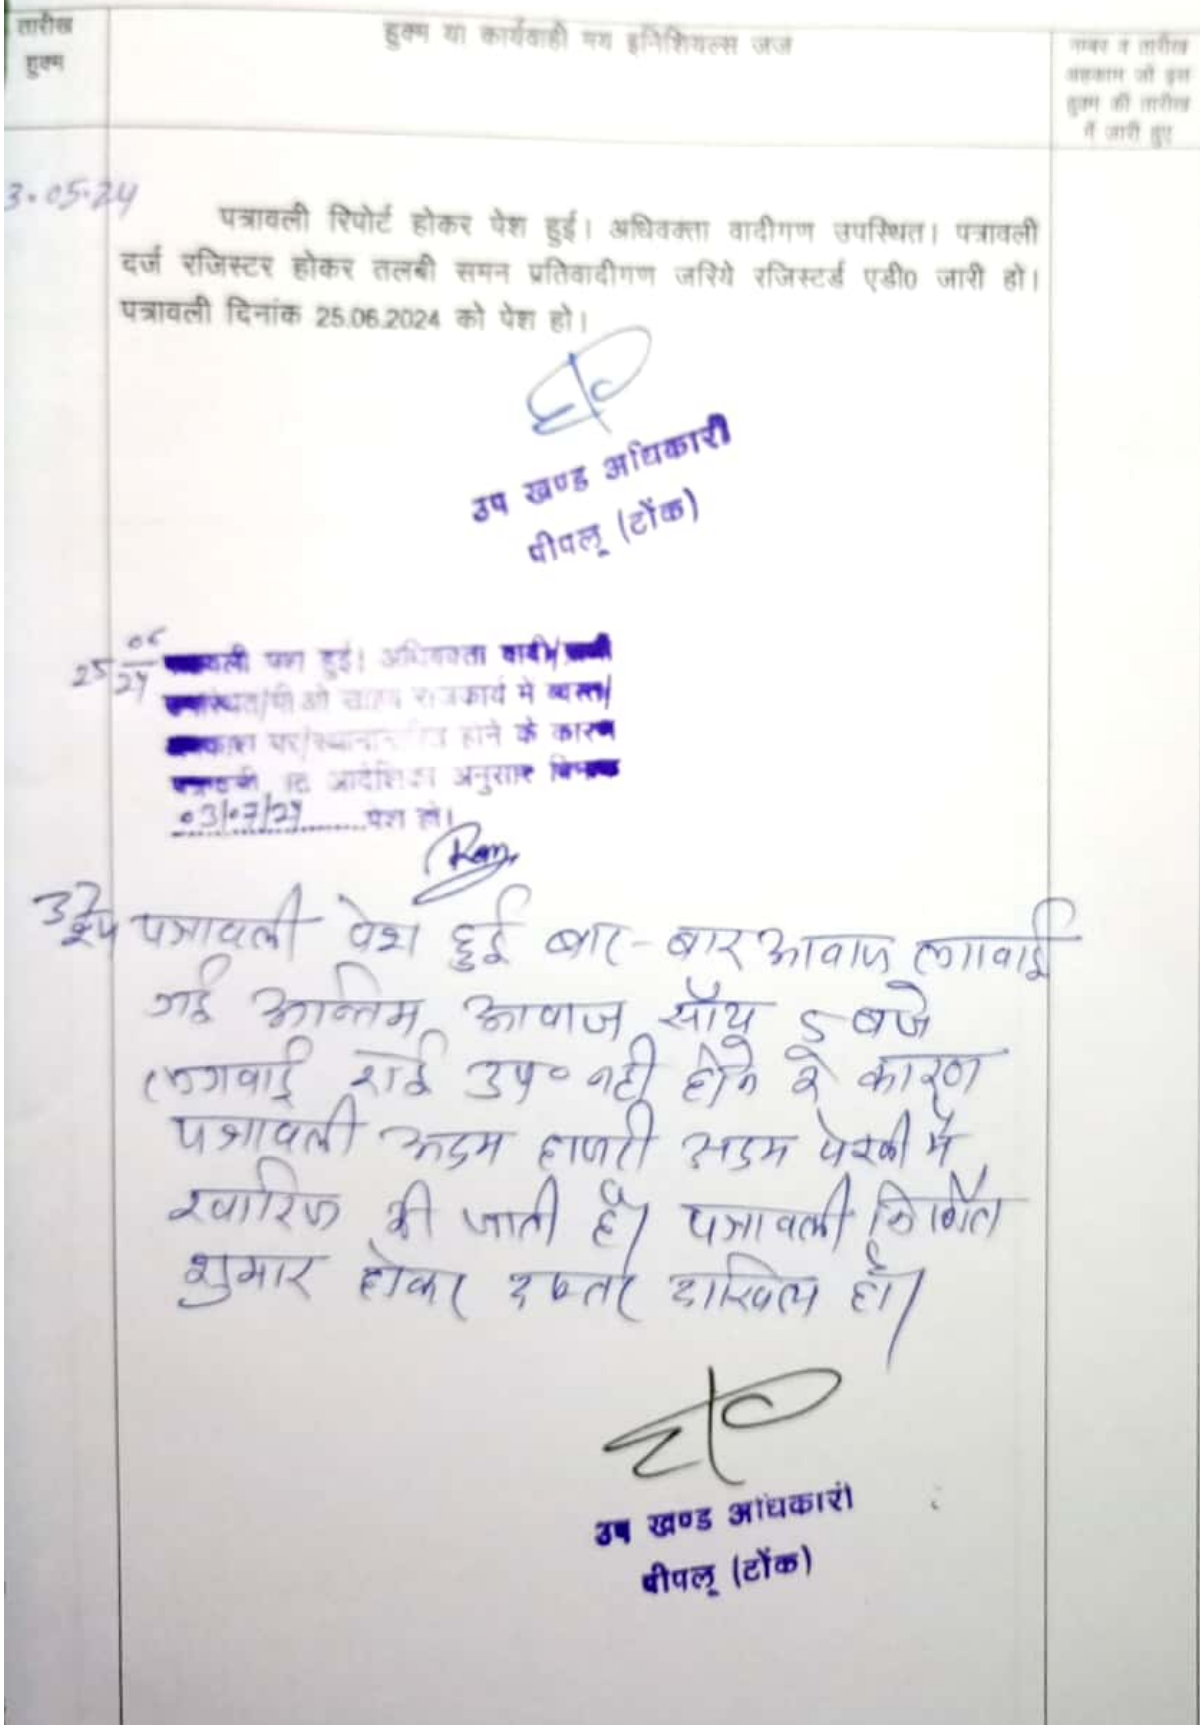 तारीख
हुक्म
हुक्म या कार्यवाही मय इनिशियल्स जज
नम्बर व तारीख
अहकाम जो इस
हुक्म की तारीख
में जारी हुए
3.05.24
पत्रावली रिपोर्ट होकर पेश हुई। अधिवक्ता वादीगण उपस्थित। पत्रावली
दर्ज रजिस्टर होकर तलबी समन प्रतिवादीगण जरिये रजिस्टर्ड एडी0 जारी हो।
पत्रावली दिनांक 25.06.2024 को पेश हो।
उप खण्ड अधिकारी
पीपलू (टोंक)
25 06/24
पेश हुई। अधिवक्ता वादी/
राजकार्य में व्यस्त/
पर/ होने के कारण
आदेशिका अनुसार
03/07/24 पेश हो।
3 7/24 पत्रावली पेश हुई बार-बार आवाज लगवाई
गई अन्तिम आवाज साँय 5 बजे
लगवाई गई उप० नही होने के कारण
पत्रावली अदम हाजरी अदम पेरवी में
खारिज की जाती है। पत्रावली निर्णित
शुमार होकर दफ्तर दाखिल हो।
उप खण्ड अधिकारी
पीपलू (टोंक)